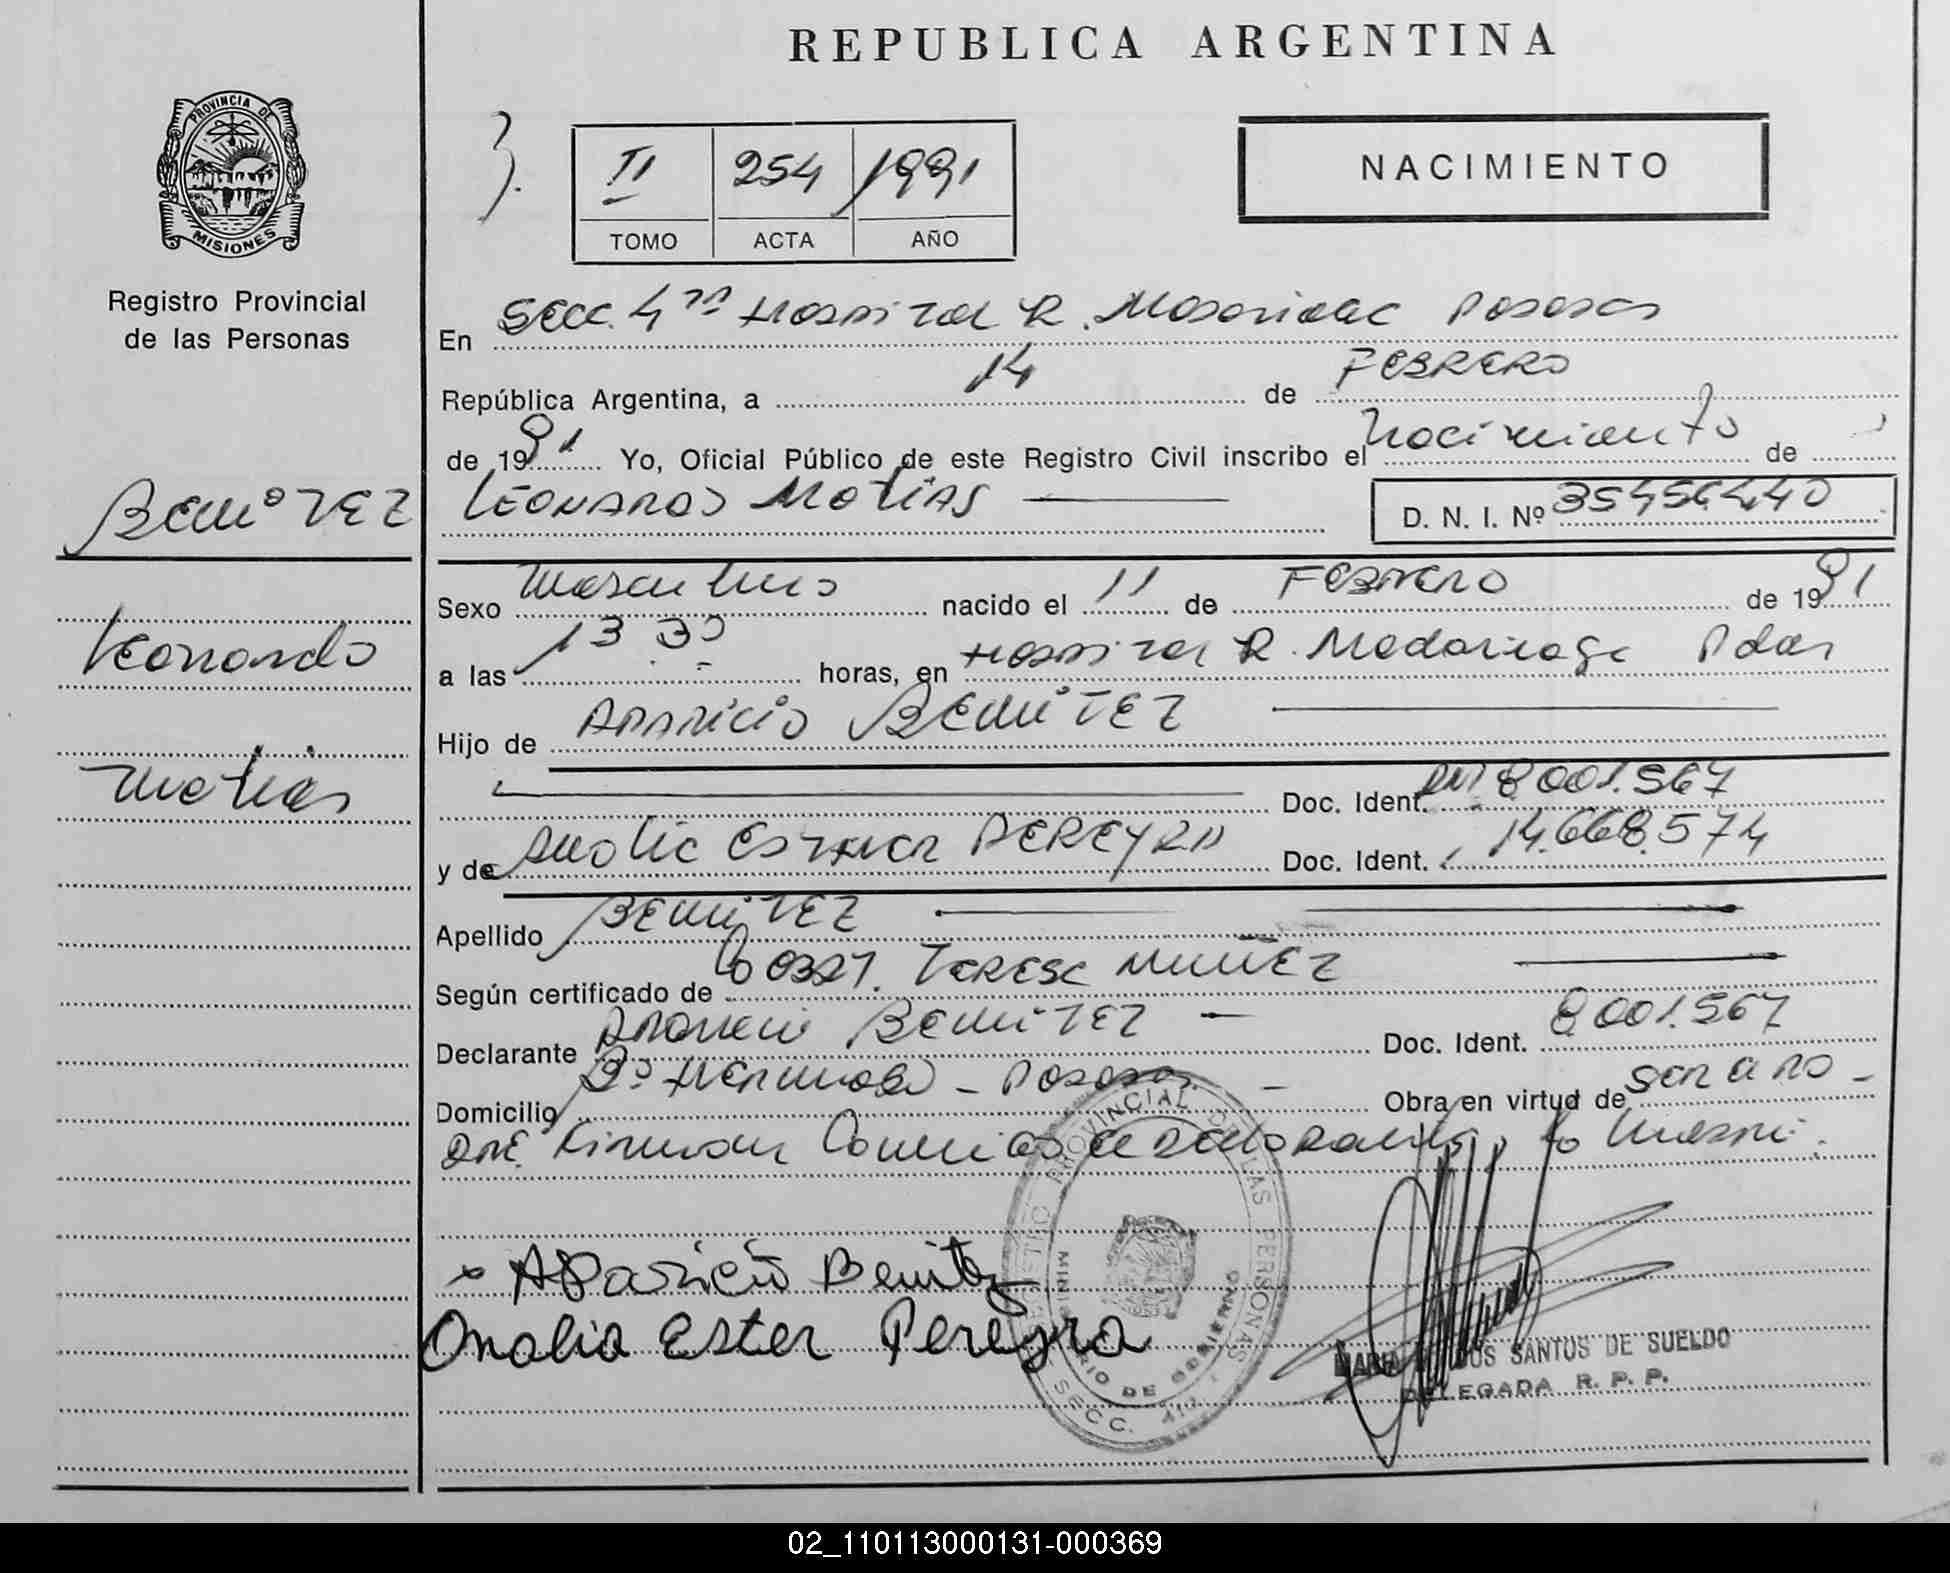 REPUBLICA ARGENTINA
PROVINCIA DE
MISIONES
Registro Provincial
de las Personas
II 254 1991
TOMO ACTA AÑO
NACIMIENTO
En Secc. 4ta Hospital R. Madariaga Posadas
República Argentina, a 14 de FEBRERO
de 1991 Yo, Oficial Público de este Registro Civil inscribo el Nacimiento de
LEONARDO MATIAS
D. N. I. Nº 35456440
BENITEZ
Leonardo
Matias
Sexo Masculino nacido el 11 de FEBRERO de 1991
a las 13 30 horas, en Hospital R. Madariaga Pdas
Hijo de APARICIO BENITEZ
Doc. Ident. DNI 8001.567
y de Analia Esther PEREYRA Doc. Ident. 14.668.574
Apellido BENITEZ
Según certificado de Obst. Teresa NUÑEZ
Declarante Aparicio BENITEZ Doc. Ident. 8001.567
Domicilio Bº - Posadas - Obra en virtud de ser
Firman
x Aparicio Benitez
Onalia Ester Pereyra
REGISTRO PROVINCIAL DE LAS PERSONAS
MINISTERIO DE GOBIERNO
SECC.
SANTOS DE SUELDO
DELEGADA R. P. P.
02_110113000131-000369